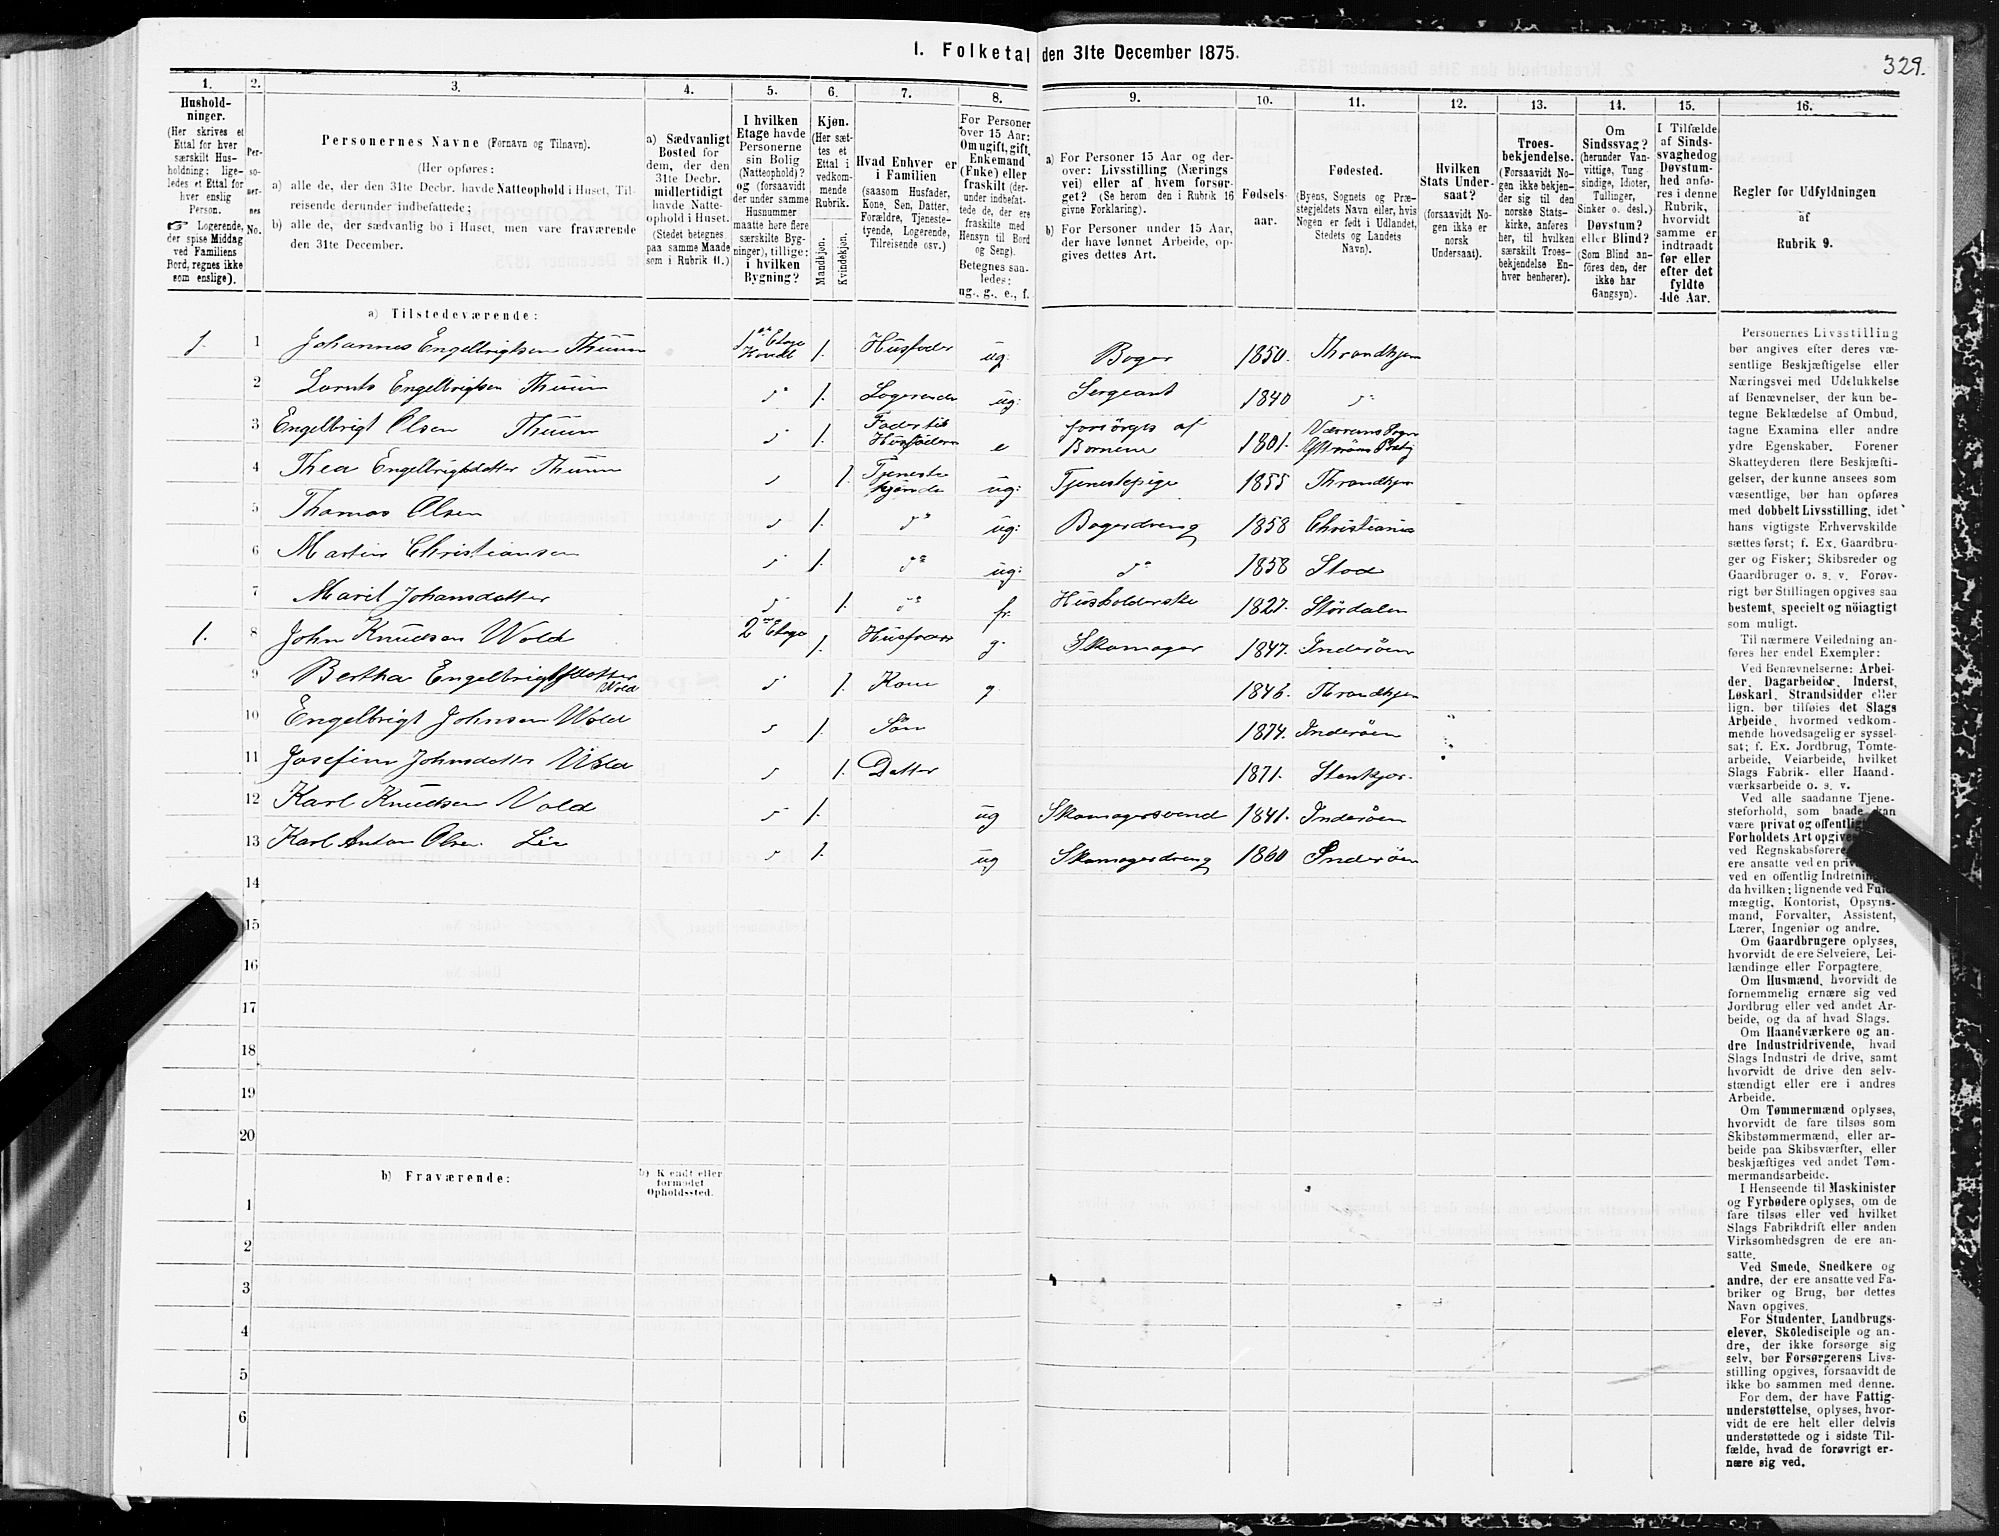 329.
I. Folketal den 31te December 1875.
1. 2. 3. 4. 5. 6. 7. 8. 9. 10. 11. 12. 13. 14. 15. 16.
Hushold-
ninger.
(Her skrives et
Ettal for hver
særskilt Hus-
holdning; lige-
ledes et Ettal for
hver enslig
Person.
☞ Logerende,
der spise Middag
ved Familiens
Bord, regnes ikke
som enslige).
Per-
so-
ner-
nes
No.
Personernes Navne (Fornavn og Tilnavn).
(Her opføres:
a) alle de, der den 31te Decbr. havde Natteophold i Huset, Til-
reisende derunder indbefattede;
b) alle de, der sædvanlig bo i Huset, men vare fraværende
den 31te December.
a) Sædvanligt
Bosted for
dem, der den
31te Decbr.
midlertidigt
havde Natte-
ophold i Huset.
(Stedet betegnes
paa samme Maade
som i Rubrik 11.)
I hvilken
Etage havde
Personerne
sin Bolig
(Natteophold)?
og (forsaavidt
der under samme
Husnummer
maatte høre flere
særskilte Byg-
ninger), tillige:
i hvilken
Bygning?
Kjøn.
(Her sæt-
tes et
Ettal i
vedkom-
mende
Rubrik.
Mandkjøn.
Kvindekjøn.
Hvad Enhver er
i Familien
(saasom Husfader,
Kone, Søn, Datter,
Forældre, Tjeneste-
tyende, Logerende,
Tilreisende osv.)
For Personer
over 15 Aar:
Om ugift, gift,
Enkemand
(Enke) eller
fraskilt (der-
under indbefat-
tede de, der ere
fraskilte med
Hensyn til Bord
og Seng).
Betegnes saa-
ledes:
ug., g., e., f.
a) For Personer 15 Aar og der-
over: Livsstilling (Nærings
vei) eller af hvem forsør-
get? (Se herom den i Rubrik 16
givne Forklaring).
b) For Personer under 15 Aar,
der have lønnet Arbeide, op-
gives dettes Art.
Fødsels-
aar.
Fødested.
(Byens, Sognets og Præ-
stegjeldets Navn eller, hvis
Nogen er født i Udlandet,
Stedets og Landets
Navn).
Hvilken
Stats Under-
saat?
(forsaavidt No-
gen ikke er
norsk
Undersaat).
Troes-
bekjendelse.
(Forsaavidt No-
gen ikke bekjen-
der sig til den
norske Stats-
kirke, anføres
her, til hvilken
særskilt Troes-
bekjendelse En-
hver henhører).
Om
Sindssvag?
(herunder Van-
vittige, Tung
sindige, Idioter,
Tullinger,
Sinker o. desl.)
Døvstum?
eller Blind?
(Som Blind an-
føres den, der
ikke har
Gangsyn).
I Tilfælde
af Sinds-
svaghed og
Døvstum-
hed anfø-
res i denne
Rubrik,
hvorvidt
samme er
indtraadt
før eller
efter det
fyldte
4de Aar.
Regler for Udfyldningen
af
Rubrik 9.
a) Tilstedeværende:
1. 1 Johannes Engelbrigtsen Thuun 1ste Etage 1. Husfader ug: Bager 1850. Throndhjem
2 Lornts Engelbrigtsen Thuun 1. Logerende ug: Sergeant 1840
3 Engelbrigt Olsen Thuun 1. Fader til Husfaderen e forsörges af Bornene 1801.
4 Thea Engelbrigtsdatter Thuun 1. Tjeneste ug: Tjenestepige 1855 Throndhjem
5 Thomas Olsen 1. ug: Bagerdreng 1858 Christiania
6 Martin Christiansen 1. ug: 1858 Stod
7 Marit Johansdatter 1. fr. Husholderske 1827. Stördalen
1. 8 John Knudsen Wold 2den Etage 1. g. Skomager 1847. Inderöen
9 Bertha Engelbrigtsdatter Wold 1. Kone g. 1846. Throndhjem
10 Engelbrigt Johnsen Wold 1. Sön 1874. Inderöen
11 Josefine Johnsdatter Wold 1. Datter 1871. Stenkjær.
12 Karl Knudsen Vold 1. ug Skomagersvend 1841. Inderöen
13 Karl Anton Olsen Lie 1. ug Skomagerdreng 1860 Inderöen
14
15
16
17
18
19
20
b) Fraværende:
b) Kjendt eller
formodet
Opholdssted.
1
2
3
4
5
6
Personernes Livsstilling
bør angives efter deres væ-
sentlige Beskjæftigelse eller
Næringsvei med Udelukkelse
af Benævnelser, der kun be-
tegne Beklædelse af Ombud,
tagne Examina eller andre
ydre Egenskaber. Forener
Skatteyderen flere Beskjæfti-
gelser, der kunne ansees som
væsentlige, bør han opføres
med dobbelt Livsstilling, idet
hans vigtigste Erhvervskilde
sættes først; f. Ex. Gaardbru-
ger og Fisker; Skibsreder og
Gaardbruger o. s. v. Forøv-
rigt bør Stillingen opgives saa
bestemt, specielt og nöiagtigt
som muligt.
Til nærmere Veiledning an-
føres her endel Exempler:
Ved Benævnelserne: Arbei-
der, Dagarbeider, Inderst,
Løskarl, Strandsidder eller
lign. bør tilføies det Slags
Arbeide, hvormed vedkom-
mende hovedsagelig er syssel-
sat; f. Ex. Jordbrug, Tomte-
arbeide, Veiarbeide, hvilket
Slags Fabrik- eller Haand-
værksarbeide o. s. v.
Ved alle saadanne Tjene-
steforhold, som baade kan
være privat og offentligt
Forholdets Art opgives
ved Regnskabsførere,
ere ansatte ved en
ved en offentlig Indretning
da hvilken; lignende ved
mægtig, Kontorist, Opsyns-
mand, Forvalter, Assistent,
Lærer, Ingeniør og andre.
Om Gaardbrugere oplyses,
hvorvidt de ere Selveiere, Lei-
lændinge eller Forpagtere.
Om Husmænd, hvorvidt de
fornemmelig ernære sig ved
Jordbrug eller ved andet Ar-
beide, og da af hvad Slags.
Om Haandværkere og an-
dre Industridrivende, hvad
Slags Industri de drive, samt
hvorvidt de drive den selv-
stændigt eller ere i andres
Arbeide.
Om Tømmermænd oplyses,
hvorvidt de fare tilsøs som
Skibstømmermænd, eller ar-
beide paa Skibsværfter, eller
beskjæftiges ved andet Tøm-
mermandsarbeide.
I Henseende til Maskinister
og Fyrbødere oplyses, om de
fare tilsøs eller ved hvilket
Slags Fabrikdrift eller anden
Virksomhedsgren de ere an-
satte.
Ved Smede, Snedkere og
andre, der ere ansatte ved Fa-
briker og Brug, bør dettes
Navn opgives.
For Studenter, Landbrugs-
elever, Skoledisciple og an-
dre, der ikke forsørge sig
selv, bør Forsørgerens Livs-
stilling opgives, forsaavidt de
ikke bo sammen med denne.
For dem, der have Fattig-
understøttelse, oplyses, hvor-
vidt de ere helt eller delvis
understøttede og i sidste Til-
fælde, hvad de forøvrigt er-
nære sig ved.